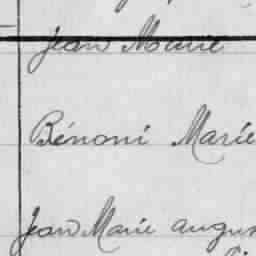 Jean Marie
Bénoni Marie
Jean Marie augus